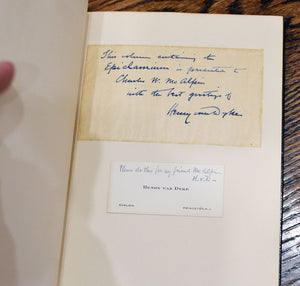 This volume containing the
Epiclammium is presented to
Charles W. McAlpin
with the best greetings of
Henry van Dyke
Please do this for my friend McAlpin
H.v.D.
HENRY VAN DYKE
AVALON
PRINCETON